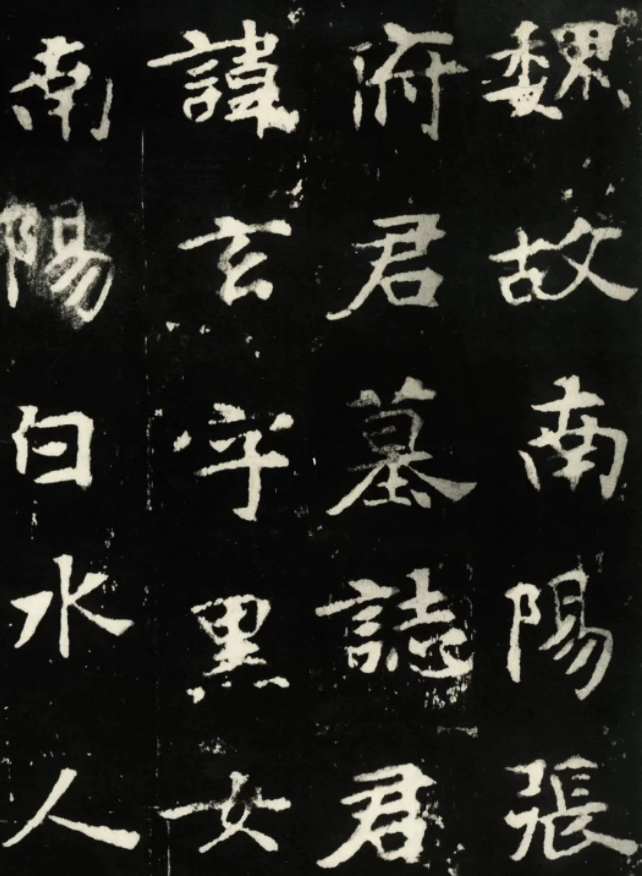 魏故南陽張
府君墓誌君
諱玄字黑女
南陽白水人